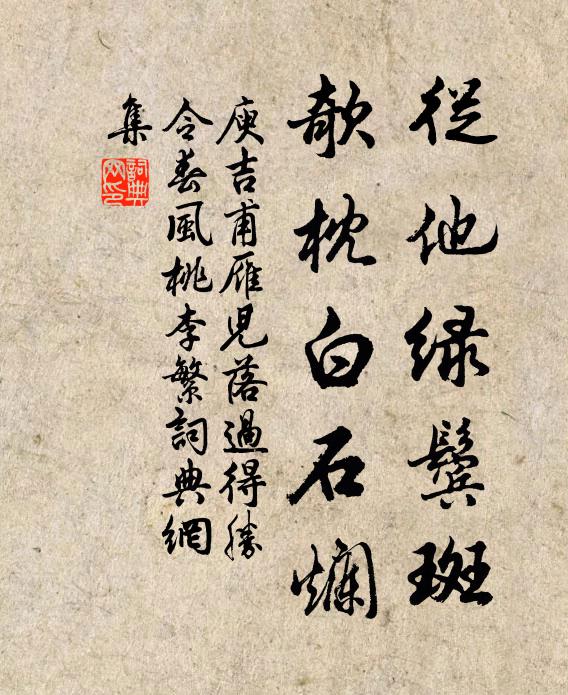 從他綠鬢斑
欹枕白石爛
庾吉甫雁兒落過得勝
令春風桃李繁詞典網
集
詞典網印